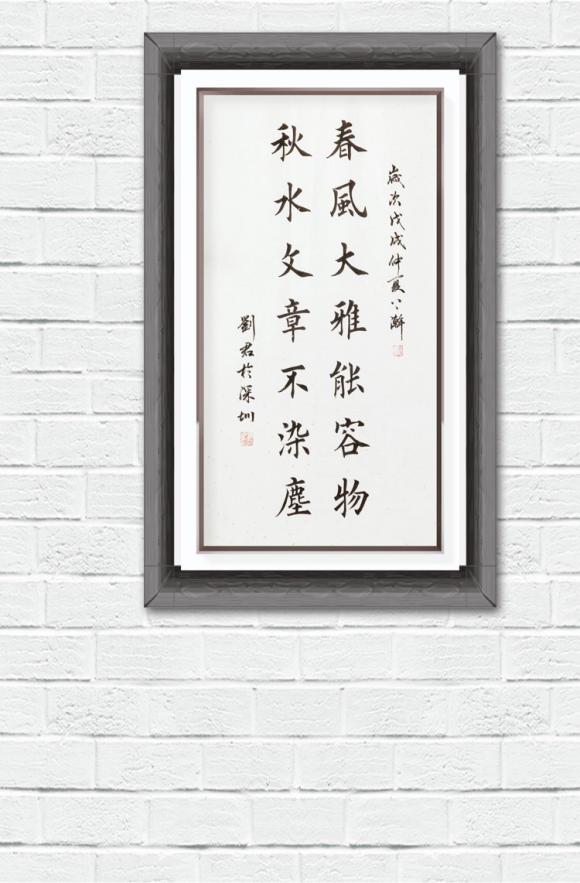 歲次戊戌仲夏八澣
春風大雅能容物
秋水文章不染塵
劉君於深圳